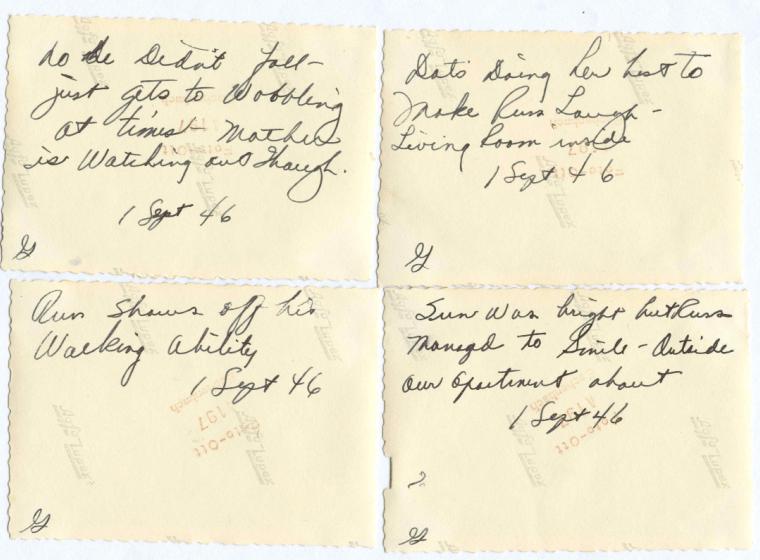 No He Didn't fall-
just gets to Wobbling
at times - Mother
is Watching out though.
1 Sept 46
Dots Doing her best to
Make Russ Laugh -
Living Room inside
1 Sept 46
Russ shows off his
Walking Ability
1 Sept 46
Sun was bright but Russ
managd to Smile - Outside
our apartment about
1 Sept 46